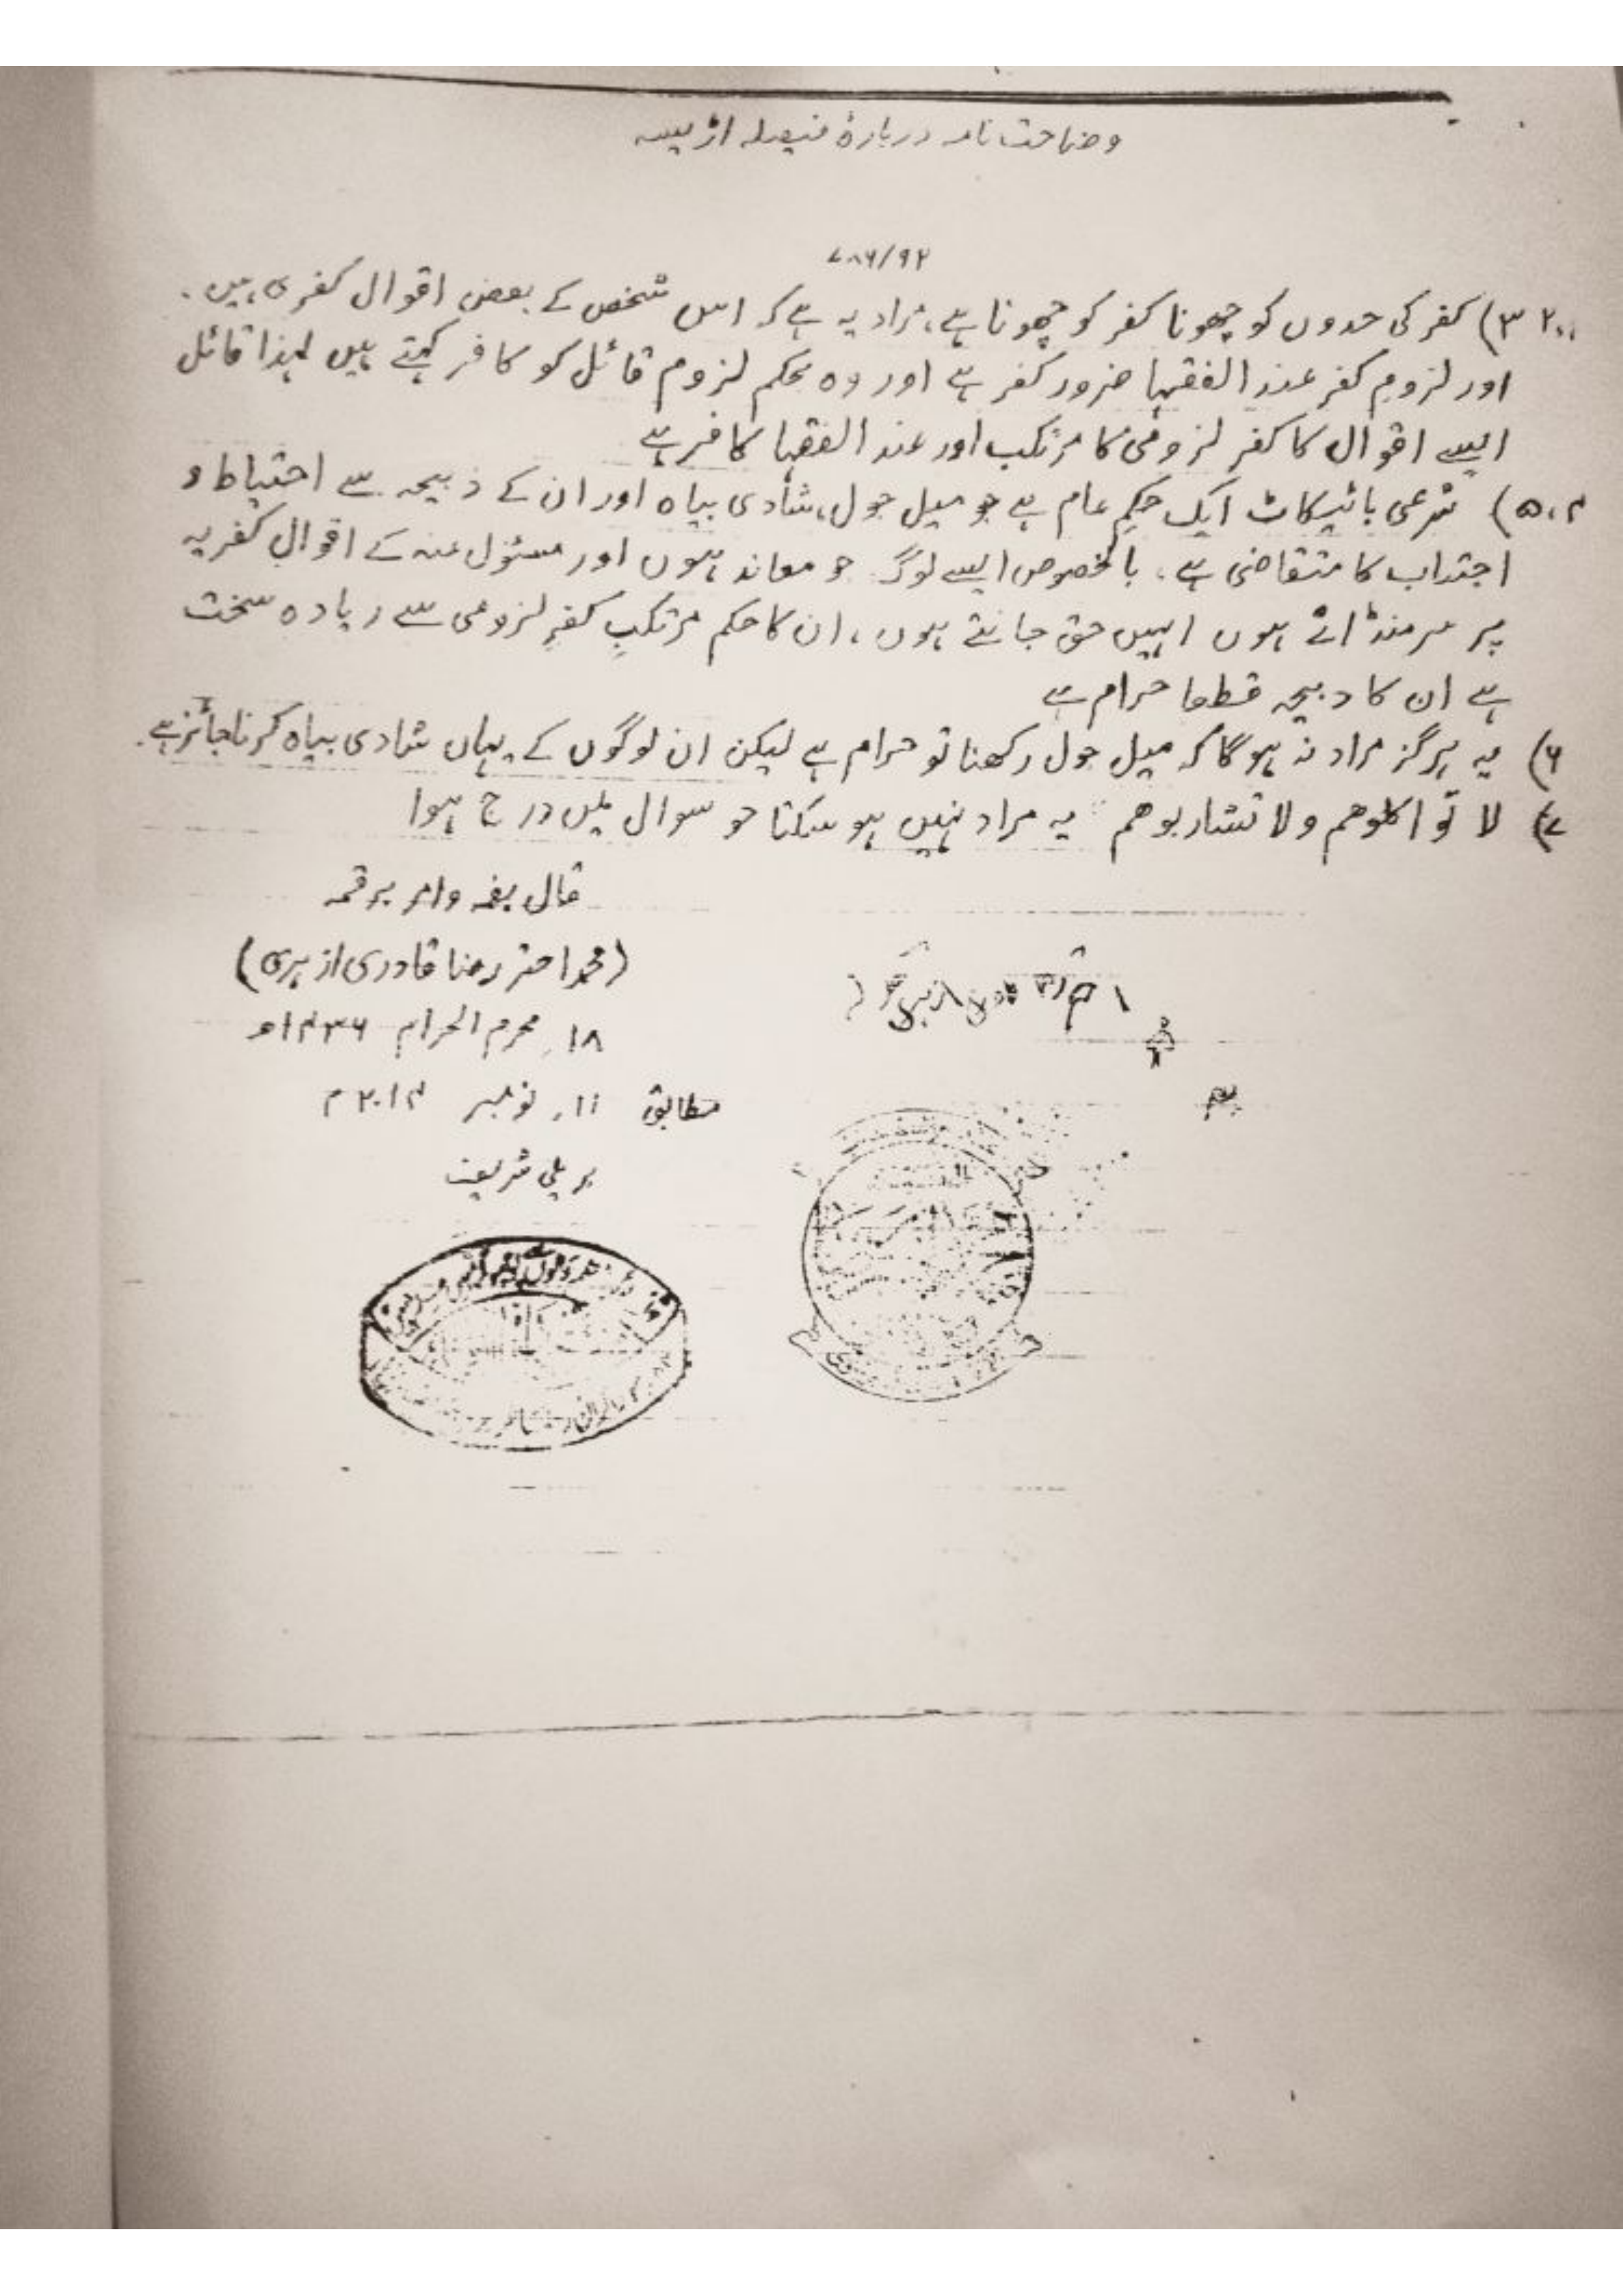 وضاحت نامہ دربارۂ فیصلہ اڑیسہ
۷۸۶/۹۲
۱،۲،۳) کفر کی حدوں کو چھونا کفر کو چھونا ہے، مراد یہ ہے کہ اس شخص کے بعض اقوال کفری ہیں۔
اور لزومِ کفر عند الفقہا ضرور کفر ہے اور وہ بحکم لزوم قائل کو کافر کہتے ہیں لہذا قائل
ایسے اقوال کا کفر لزومی کا مرتکب اور عند الفقہا کافر ہے
۴،۵) شرعی بائیکاٹ ایک حکمِ عام ہے جو میل جول، شادی بیاہ اور ان کے ذبیحہ سے احتیاط و
اجتناب کا متقاضی ہے، بالخصوص ایسے لوگ جو معاند ہوں اور مسئول عنہ کے اقوالِ کفریہ
پر سر منڈائے ہوں انہیں حق جانتے ہوں، ان کا حکم مرتکبِ کفرِ لزومی سے زیادہ سخت
ہے ان کا ذبیحہ قطعا حرام ہے
۶) یہ ہرگز مراد نہ ہوگا کہ میل جول رکھنا تو حرام ہے لیکن ان لوگوں کے یہاں شادی بیاہ کرنا جائز ہے۔
۷) لا تواکلوھم ولا تشاربوھم یہ مراد نہیں ہو سکتا جو سوال میں درج ہوا
قال بفمہ وامر برقمہ
(محمد اختر رضا قادری ازہری)
۱۸، محرم الحرام ۱۴۳۶ھ
مطابق ۱۱، نومبر ۲۰۱۴م
بریلی شریف